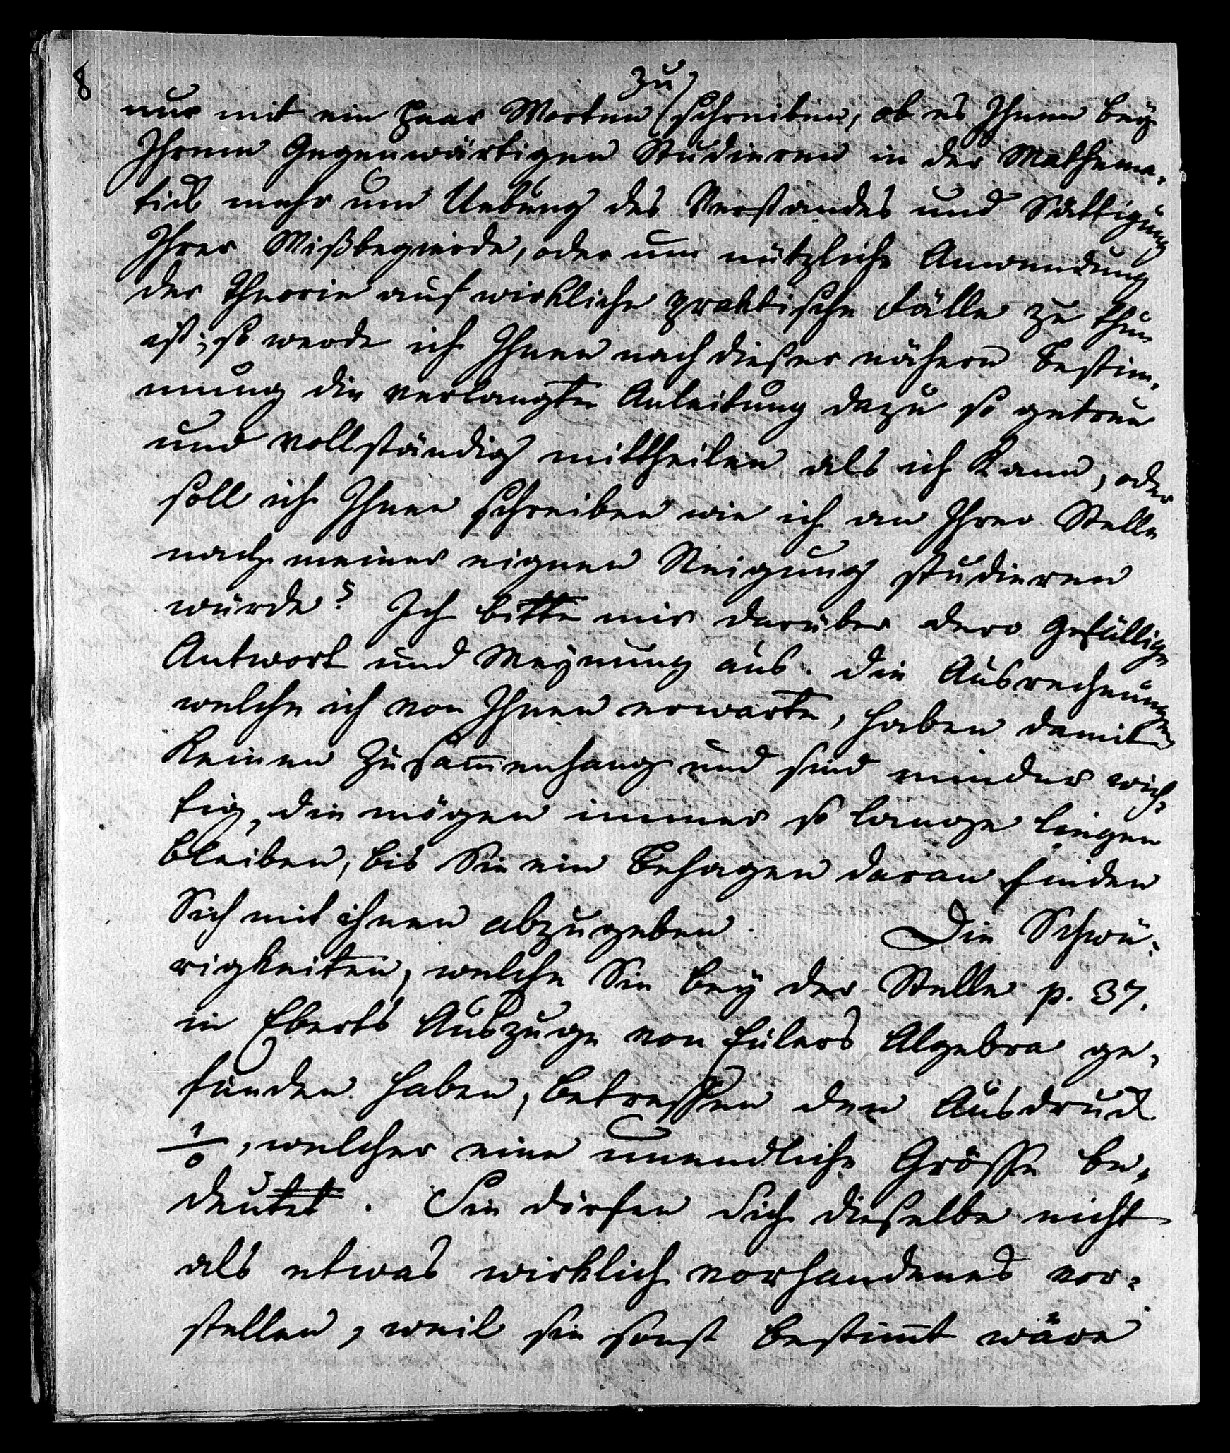 8
zu
nur mit ein paar Worten schreiben, ob es Ihnen bey
Ihrem Gegenwärtigen Studieren in der Mathema-
tick mehr um Uebung des Verstandes und Sättigung
Ihrer Wißbegierde, oder um nützliche Anwendung
der Theorie auf wirkliche praktische Fälle zu thun
ist; so werde ich Ihnen nach dieser nähern Bestim-
mung die verlangte Anleitung dazu so getreu
und vollständig mittheilen als ich kann, oder
soll ich Ihnen schreiben wie ich an Ihrer Stelle
nach meiner eignen Neigung studieren
würde? Ich bitte mir darüber dero Gefällige
Antwort und Meynung aus. Die Ausrechnungen
welche ich von Ihnen erwarte, haben damit
keinen Zusam̄enhang und sind minder wich-
tig, die mögen immer so lange liegen
bleiben, bis Sie ein Behagen daran finden
Sich mit ihnen abzugeben. Die Schwü-
rigkeiten, welche Sie bey der Stelle p. 37.
in Eberts Auszuge von Eulers Algebra ge-
funden haben, betreffen den Ausdruck
1/0, welcher eine unendliche Grösse be-
deutet. Sie dörfen Sich dieselbe nicht
als etwas wirklich vorhandenes vor-
stellen, weil sie sonst bestim̄t wäre